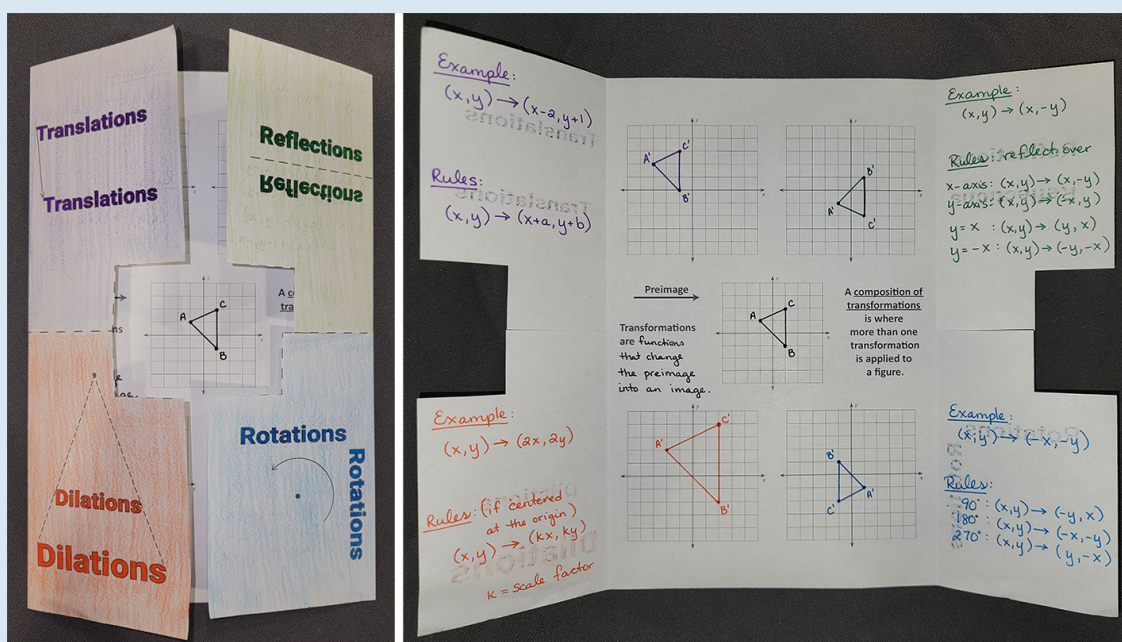 Translations
Translations
Reflections
Reflections
y
A co
tra
ns
A
C
B
x
Dilations
Dilations
Rotations
Rotations
Example:
(x,y) → (x-2, y+1)
Translations
Rules:
Translations
(x,y) → (x+a, y+b)
y
A'
C'
B'
x
y
B'
A'
C'
x
Example:
(x,y) → (x,-y)
Rules: reflect over
x-axis: (x,y) → (x,-y)
y-axis: (x,y) → (-x,y)
y=x : (x,y) → (y,x)
y=-x : (x,y) → (-y,-x)
Preimage
Transformations
are functions
that change
the preimage
into an image.
y
A
C
B
x
A composition of
transformations
is where
more than one
transformation
is applied to
a figure.
Example:
(x,y) → (2x, 2y)
Rules: (if centered
at the origin)
(x,y) → (kx, ky)
Dilations
k = scale factor
y
A'
C'
B'
x
y
B'
A'
C'
x
Example:
Rotations
(x,y) → (-x,-y)
Rules:
90°: (x,y) → (-y,x)
180°: (x,y) → (-x,-y)
270°: (x,y) → (y,-x)